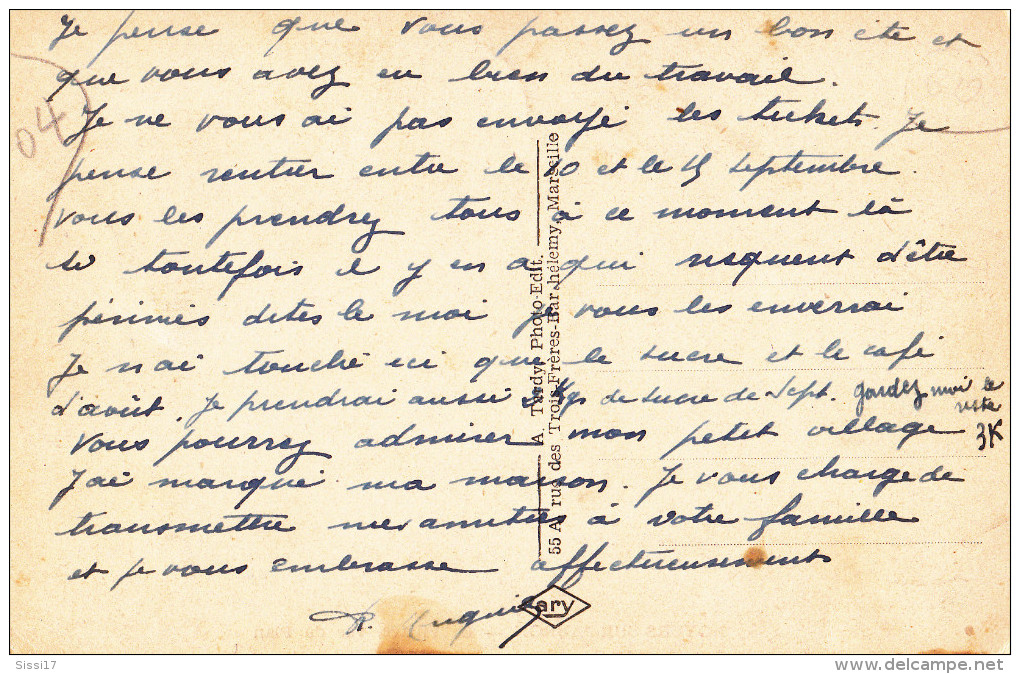 Je pense que vous passez un bon été et
que vous avez eu bien du travail.
Je ne vous ai pas envoyé les tickets. Je
pense rentrer entre le 10 et le 15 septembre.
Vous les prendrez tous à ce moment là
si toutefois il y en a qui risquent d'être
périmés dites le moi je vous les enverrai
Je n'ai touché ici que le sucre et le café
d'août. Je prendrai aussi 2 Kgs de sucre de Sept. gardez moi le
reste
3K
Vous pourrez admirer mon petit village
J'ai marqué ma maison. Je vous charge de
transmettre mes amitiés à votre famille
et je vous embrasse affectueusement
04
A. Tardy, Photo-Edit.
55 A, rue des Trois-Frères-Barthélemy, Marseille
ary
Sissi17
www.delcampe.net